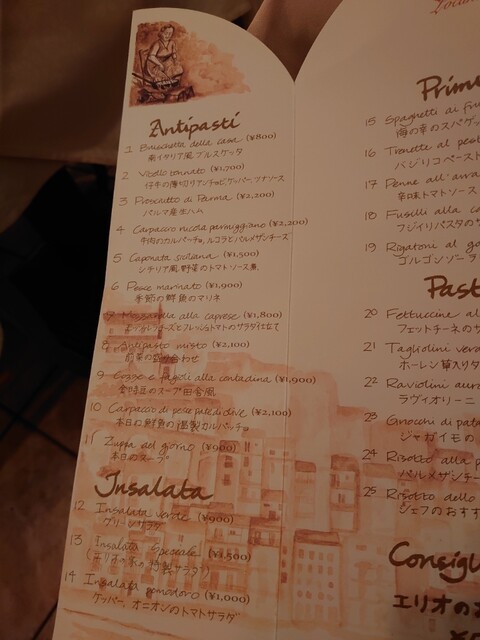 Antipasti
1 Bruschetta della casa (¥800)
南イタリア風ブルスケッタ
2 Vitello tonnato (¥1,700)
仔牛の薄切りアンチョビ、ケッパー、ツナソース
3 Prosciutto di Parma (¥2,200)
パルマ産生ハム
4 Carpaccio rucola parmiggiano (¥2,200)
牛肉のカルパッチョ、ルコラとパルメザンチーズ
5 Caponata siciliana (¥1,500)
シチリア風、野菜のトマトソース煮
6 Pesce marinato (¥1,900)
季節の鮮魚のマリネ
Mozzarella alla caprese (¥1,800)
モッツァレラチーズとフレッシュトマトのサラダ仕立て
8 Antipasto misto (¥2,100)
前菜の盛り合わせ
9 fagioli alla contadina (¥1,900)
金時豆のスープ田舎風
10 Carpaccio di pesce (¥2,100)
本日の鮮魚の カルパッチョ
11 Zuppa del giorno (¥900)
本日のスープ
Insalata
12 Insalata verde (¥900)
グリーンサラダ
13 Insalata Speciale (¥1,500)
(エリオの 特製サラダ!)
14 Insalata pomodoro (¥1,000)
ケッパー、オニオンのトマトサラダ
Prim
15 Spaghetti ai fru
海の幸のスパゲッ
16 Trenette al pest
バジリコペースト
17 Penne all'arra
辛味トマトソース
18 Fusilli alla co
フジイリパスタの
19 Rigatoni al go
ゴルゴンゾーラ
Past
20 Fettuccine al
フェットチーネのサ
21 Tagliolini vera
ホーレン草入りタ
22 Raviolini auro
ラヴィオリーニ
23 Gnocchi di pata
ジャガイモの
24 Risotto alla p
パルメザンチー
25 Risotto dello
シェフのおす
Consigl
エリオのお